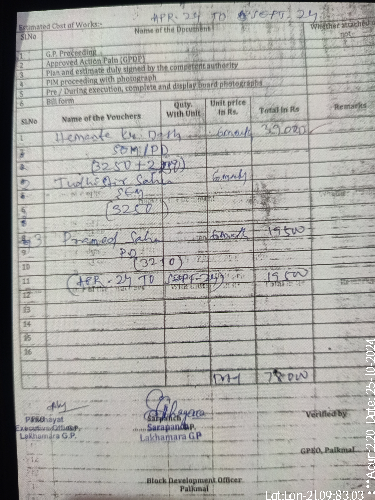 APR-24 TO SEPT-24
Estimated Cost of Works:-
Sl.No Name of the Document Whether attached or not
1 G.P. Proceeding
2 Approved Action Paln (GPDP)
3 Plan and estimate duly signed by the competent authority
4 PIM proceeding with photograph
5 Pre / During execution, complete and display board photographs
6 Bill form
Sl.No Name of the Vouchers Quty. With Unit Unit price in Rs. Total in Rs Remarks
1 Hemanta Ku. Dash 6month 39000
SEM/PD
(3250+
2 Sahu 6month
SEM
(3250)
3 Pramod Sahu 6month 19500
10 (3250)
11 (APR-24 TO SEPT-24) 19500
12
13
14
15
16
78000
Panchayat
Executive Officer
Lakhamara G.P.
Sarpanch
Sarapanch
Lakhamara G.P
Verified by
GPEO, Paikmal
Block Development Officer
Paikmal
Date: 25-10-2024